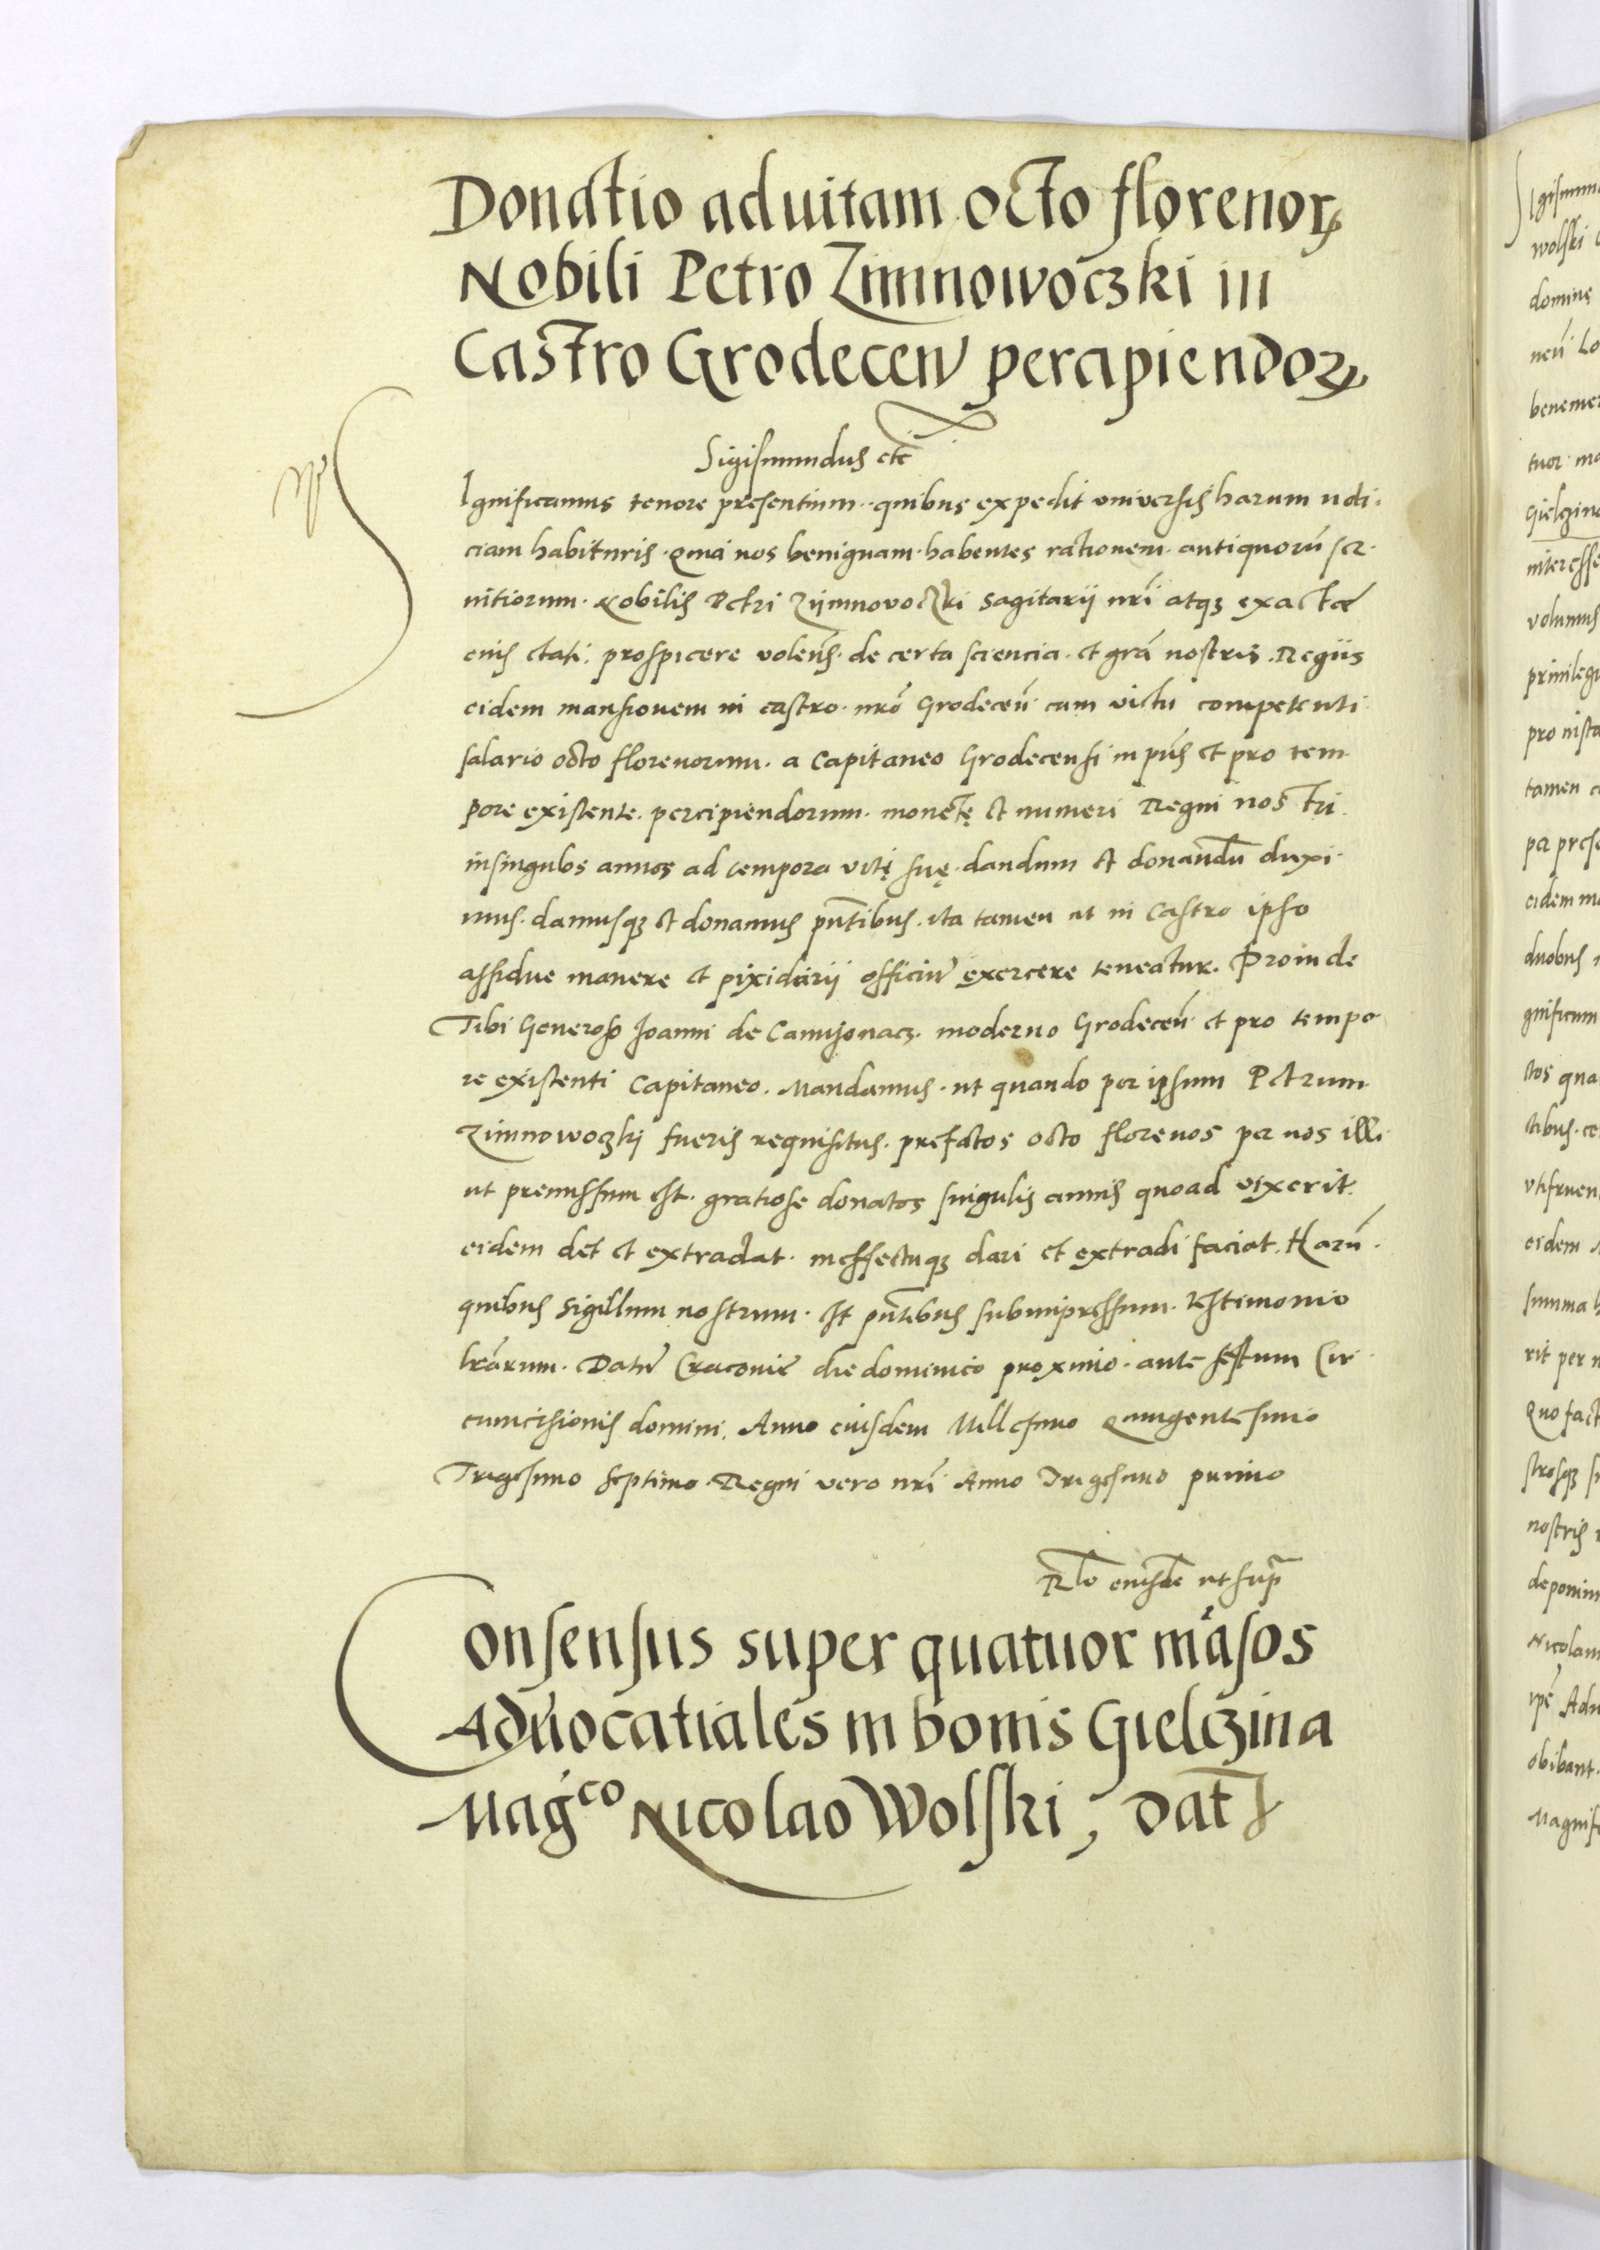 Donatio ad uitam octo florenorꝝ
Nobili Petro Zimnowoczki in
Castro Grodeceñ percipiendorꝝ
Sigismundus etc̃
Significamus tenore presentium. quibus expedit vniversis harum noti
ciam habituris. Quia nos benignam habentes rationem antiquorũ ser
uitiorum. Nobilis Petri Zijmnovoczki sagitarii nr̃i atqꝫ exactæ
eius etati. prospicere volen̄s. de certa sciencia. et gr̃a nostris Regiis
eidem mansionem in castro nr̃o Grodeceñ cum victu competenti
salario octo florenorum. a Capitaneo Grodecensi in pñs et pro tem
pore existente. percipiendorum. monetę et numeri Regni nostri
in singulos annos ad tempora vitę suę. dandum et donandũ duxi
mus. damusqꝫ et donamus pñtibus. ita tamen ut in Castro ipso
assidue manere et pixidarii officiũ exercere teneatur. Proinde
Tibi Generoso Joanni de moderno Grodeceñ et pro tempo
re existenti Capitaneo. Mandamus. ut quando per ipsum Petrum
Zimnowoczkj fueris requisitus. prefatos octo florenos per nos illi
ut premissum est. gratiose donatos singulis annis quoad vixerit.
eidem det et extradat. ineffectuqꝫ dari et extradi faciat. Harũ
quibus Sigillum nostrum. est pñtibus subimpressum. testimonio
lr̃arum. Datũ Cracovie die dominico proximo. ante festum Cir
cumcisionis domini. Anno eiusdem Millesimo Quingentesimo
Trigesimo Septimo Regni vero nr̃i Anno Trigesimo primo
Rlo eiusdẽ ut supr̃
Consensus super quatuor mãsos
Aduocatiales in bonis Gielczina
Magco Nicolao Wolski, dat